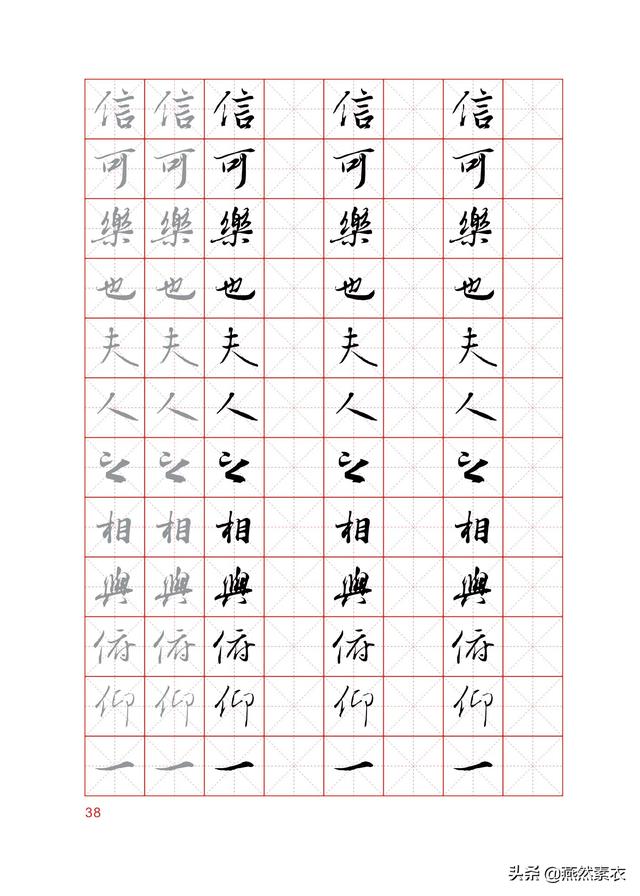 信 信 信 信 信
可 可 可 可 可
樂 樂 樂 樂 樂
也 也 也 也 也
夫 夫 夫 夫 夫
人 人 人 人 人
之 之 之 之 之
相 相 相 相 相
與 與 與 與 與
俯 俯 俯 俯 俯
仰 仰 仰 仰 仰
一 一 一 一 一
38
头条 @燕然素衣